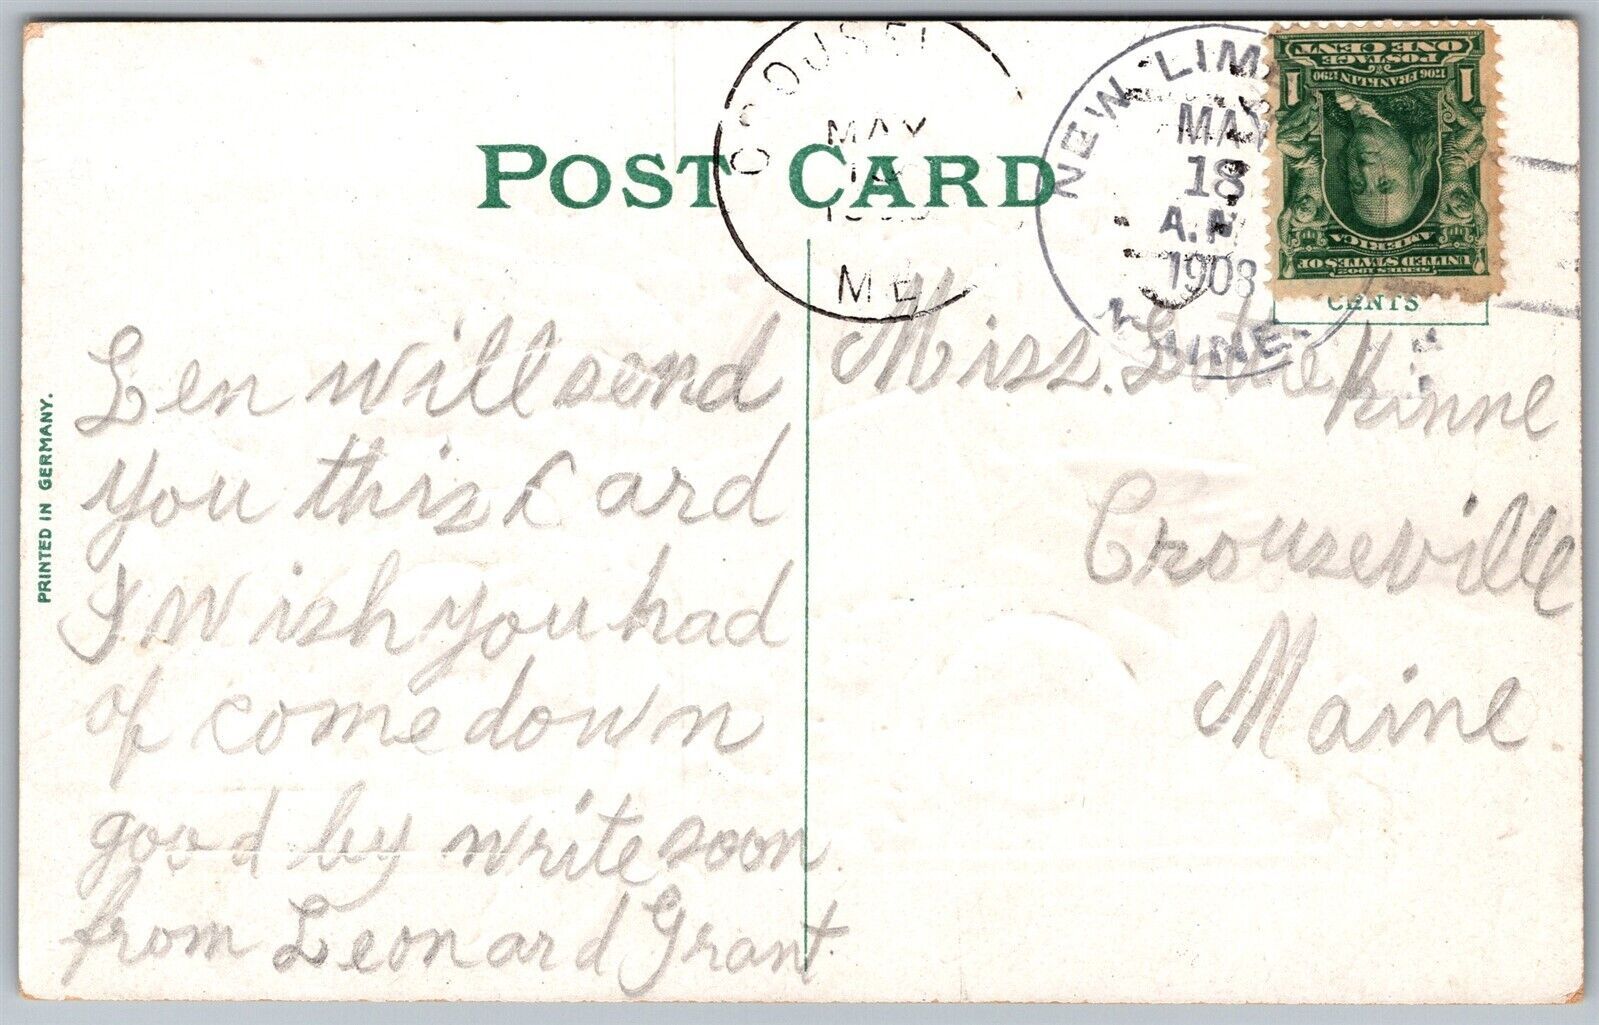 POST CARD
CROUSE
MAY
19
ME
NEW LIM
MAY
18
A.M.
1908
MAINE.
ONE CENT
POSTAGE
1706 FRANKLIN 1790
1 1
UNITED STATES OF
AMERICA
SERIES 1902
CENTS
PRINTED IN GERMANY.
Len will send
you this Card
I Wish you had
of come down
good by write soon
from Leonard Grant.
Miss. Lottie Kinne
Crouseville
Maine